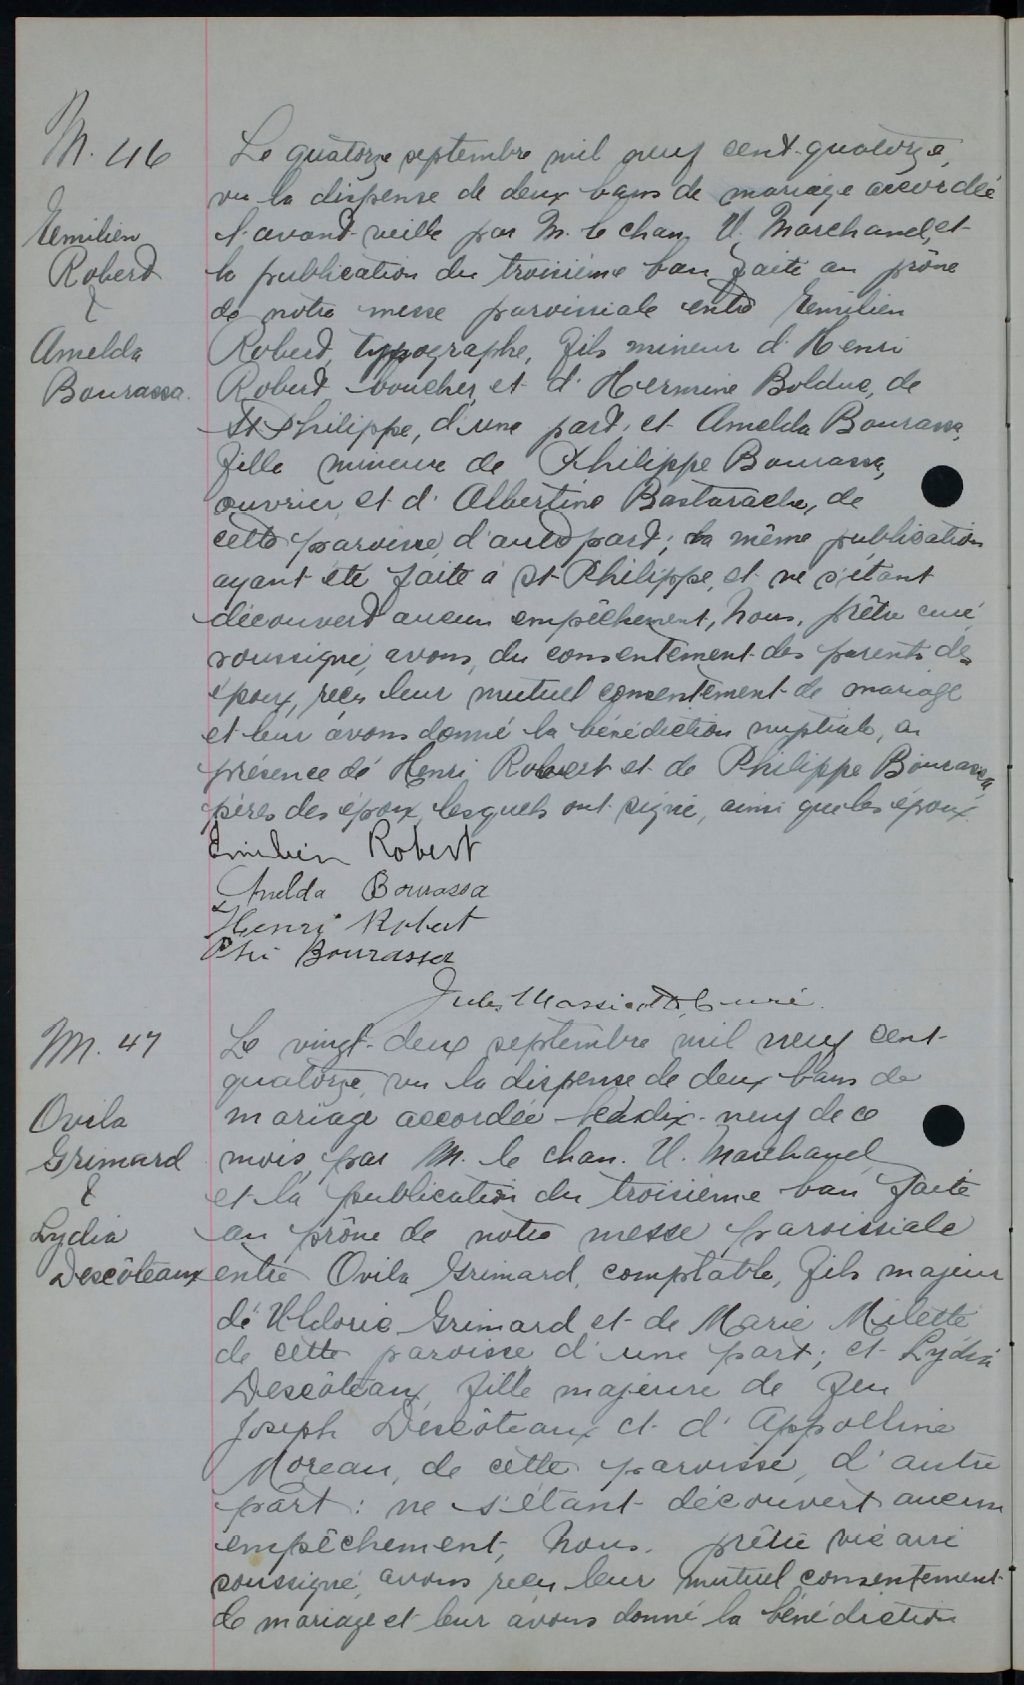 M. 46
Emilien
Robert
&
Amelda
Bourassa.
Le quatorze septembre mil neuf cent quatorze,
vu la dispense de deux bans de mariage accordée
l'avant-veille par M. le chan. U. Marchand, et
la publication du troisième ban faite au prône
de notre messe paroissiale entre Emilien
Robert, typographe, fils mineur d'Henri
Robert boucher, et d'Hermine Bolduc, de
St Philippe, d'une part, et Amelda Bourassa,
fille mineure de Philippe Bourassa,
ouvrier, et d'Albertine Bastarache, de
cette paroisse, d'autre part; la même publication
ayant été faite à St-Philippe, et ne s'étant
découvert aucun empêchement, Nous, prêtre curé
soussigné, avons, du consentement des parents des
époux, reçu leur mutuel consentement de mariage
et leur avons donné la bénédiction nuptiale, en
présence de Henri Robert et de Philippe Bourassa,
pères des époux, lesquels ont signé, ainsi que les époux.
Emilien Robert
Amelda Bourassa
Henri Robert
Phi Bourassa
Jules Massicotte curé.
M. 47
Ovila
Grimard
&
Lydia
Descôteaux
Le vingt-deux septembre mil neuf cent-
quatorze, vu la dispense de deux bans de
mariage accordée le dix-neuf de ce
mois, par M. le chan. U. Marchand
et la publication du troisième ban faite
au prône de notre messe paroissiale
entre Ovila Grimard, comptable, fils majeur
de Uldoric Grimard et de Marie Milette
de cette paroisse d'une part; et Lydia
Descôteaux, fille majeure de feu
Joseph Descôteaux et d'Appolline
Moreau, de cette paroisse, d'autre
part: ne s'étant découvert aucun
empêchement, Nous, prêtre vicaire
soussigné, avons reçu leur mutuel consentement
de mariage et leur avons donné la bénédiction